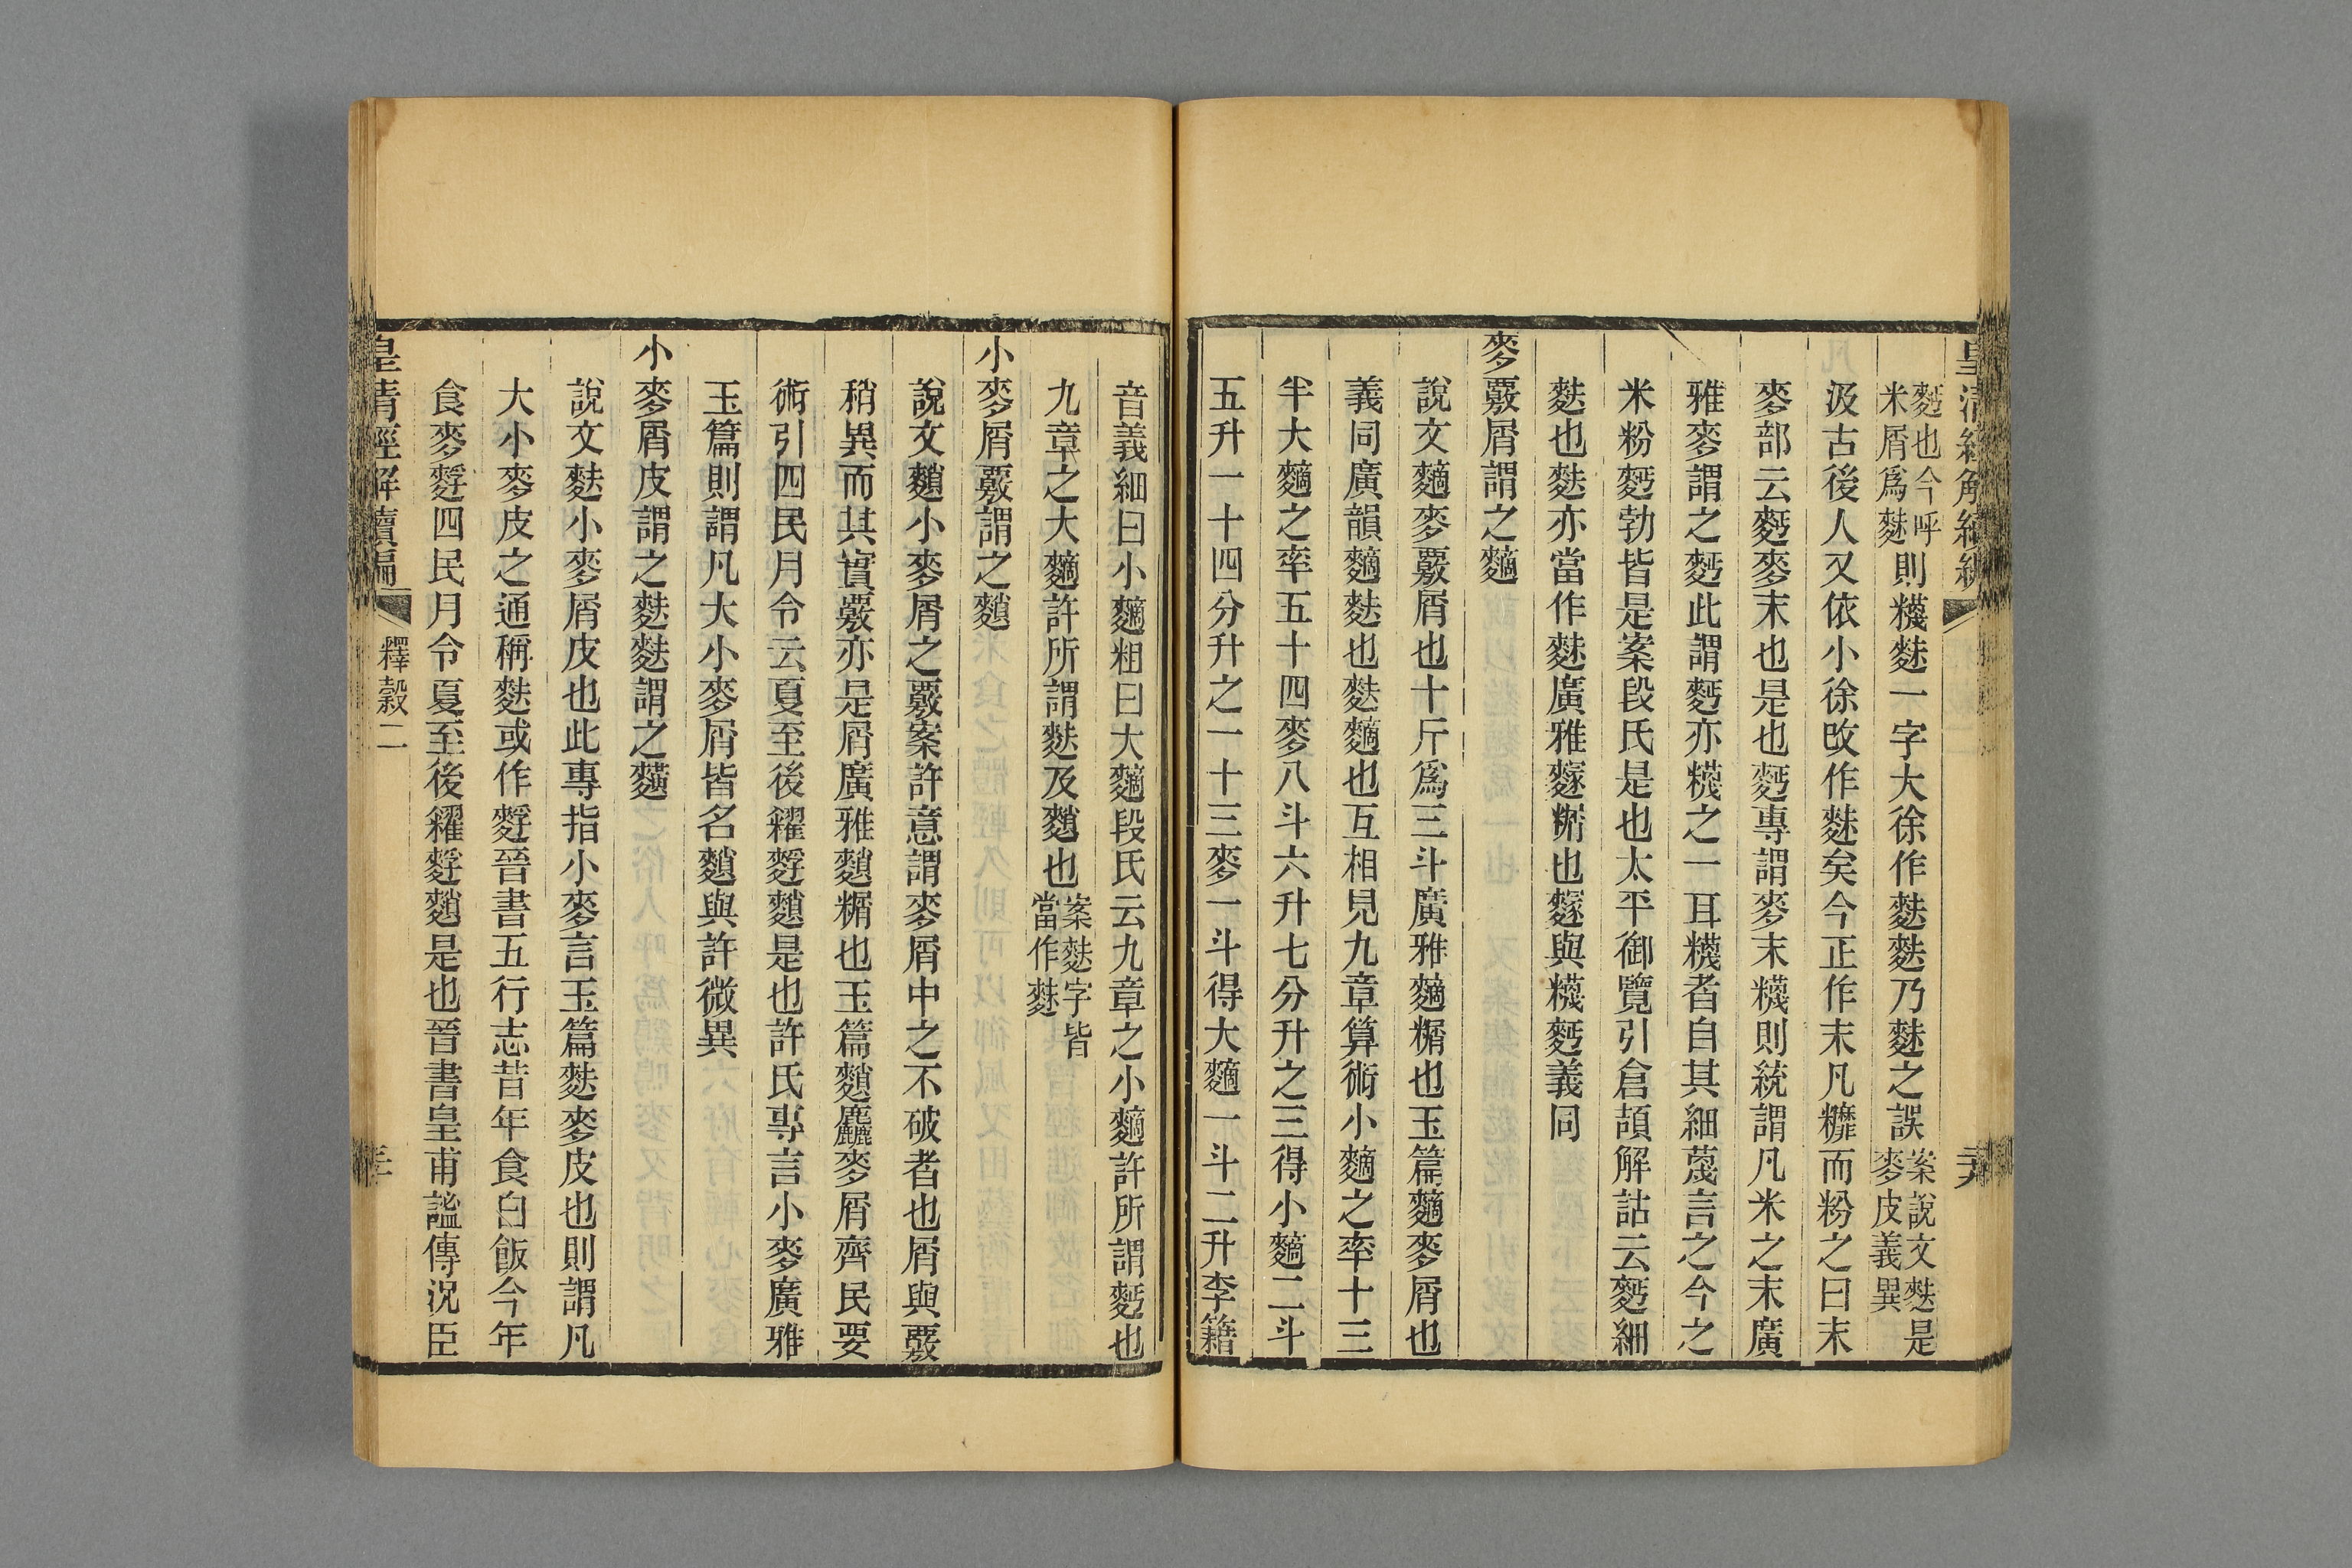 皇清經解續編
麫也今呼
米屑爲䴲
則䊳䴲一字大徐作麩麩乃䴲之誤
案說文麩是
麥皮義異
汲古後人又依小徐改作䴲矣今正作末凡䊳而粉之曰末
麥部云麫麥末也是也麫專謂麥末䊳則統謂凡米之末廣
雅麥謂之麫此謂麫亦䊳之一耳䊳者自其細蔑言之今之
米粉麫勃皆是案段氏是也太平御覽引倉頡解詁云麫細
麩也麩亦當作䴲廣雅䴽糏也䴽與䊳麫義同
麥覈屑謂之䵂
說文䵂麥覈屑也十斤爲三斗廣雅䵂糏也玉篇䵂麥屑也
義同廣韻䵂麩也麩䵂也互相見九章算術小䵂之率十三
半大䵂之率五十四麥八斗六升七分升之三得小䵂二斗
五升一十四分升之一十三麥一斗得大䵂一斗二升李籍
音義細曰小䵂粗曰大䵂段氏云九章之小䵂許所謂麫也
九章之大䵂許所謂麩及䴰也
案麩字皆
當作䴲
小麥屑覈謂之䴰
說文䴰小麥屑之覈案許意謂麥屑中之不破者也屑與覈
稍異而其實覈亦是屑廣雅䴰糏也玉篇䴰麤麥屑齊民要
術引四民月令云夏至後糴䴸䴰是也許氏專言小麥廣雅
玉篇則謂凡大小麥屑皆名䴰與許微異
小麥屑皮謂之麩麩謂之䵃
說文麩小麥屑皮也此專指小麥言玉篇麩麥皮也則謂凡
大小麥皮之通稱麩或作䴸晉書五行志昔年食白飯今年
食麥䴸四民月令夏至後糴䴸䴰是也晉書皇甫謐傳況臣
皇清經解續編
釋穀二